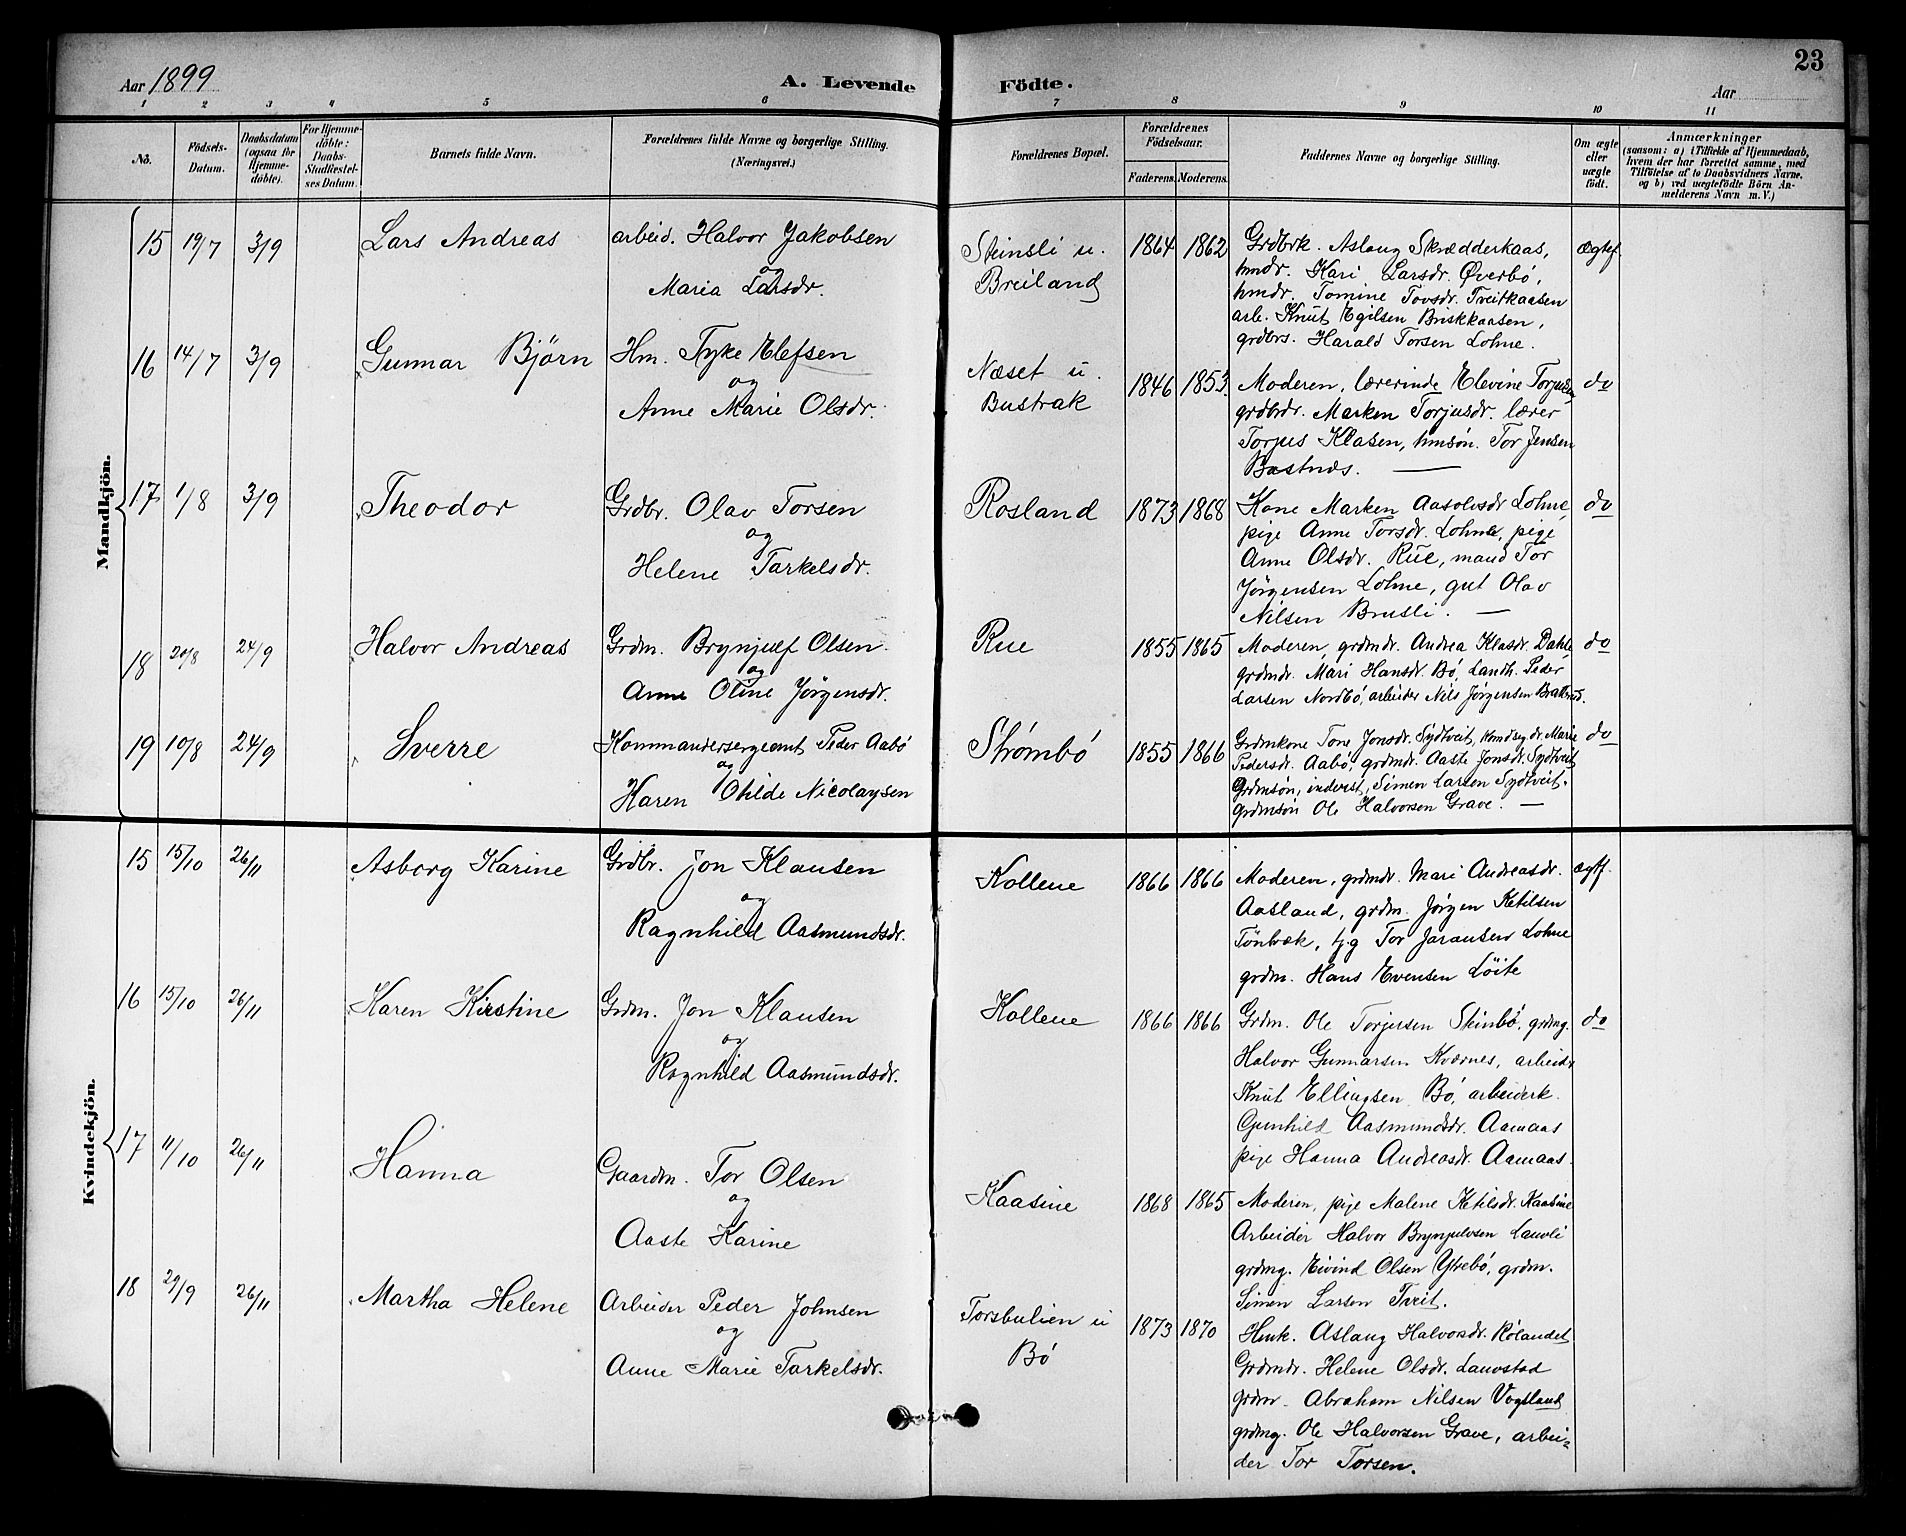 Aar 1899
A. Levende Födte.
23
Aar
1 2 3 4 5 6 7 8 9 10 11
No.
Födsels-Datum.
Daabsdatum (ogsaa for Hjemme-döbte).
For Hjemme-döbte: Daabs-Stadfæstel-ses Datum.
Barnets fulde Navn.
Forældrenes fulde Navne og borgerlige Stilling.
(Næringsvei.)
Forældrenes Bopæl.
Forældrenes Födselsaar.
Faderens. Moderens.
Faddernes Navne og borgerlige Stilling.
Om ægte eller uægte födt.
Anmærkninger
(saasom: a) i Tilfælde af Hjemmedaab,
hvem der har forrettet samme, med
Tilföielse af to Daabsvidners Navne.
og b) ved uægtefödte Börn An-
melderens Navn m. V.)
Mandkjön.
15 19/7 3/9 Lars Andreas arbeid. Halvor Jakobsen
og
Maria Larsdr.
Stinsli u.
Breiland
1864 1862
Grdbrk. Aslaug Skrædderkaas,
hmdr. Kari Larsdr. Øverbö,
hmdr. Tomine Tovsdr. Treitkaasen
arb. Knut Egilsen Briskkaasen,
grdbrs. Harald Torsen Lohne.
ægtef.
16 14/7 3/9 Gunnar Bjørn Hm. Tyke Elefsen
og
Anne Marie Olsdr.
Næset u.
Bustrak
1846 1853.
Moderen, lærerinde Elevine Torjusen
grdbrdr. Marken Torjusdr. lærer
Torjus Klasen, hmsøn. Tor Jensen
Bastnæs. —
do
17 1/8 3/9 Theodor Grdbr. Olav Torsen
og
Helene Tarkelsdr.
Rosland
1873 1868
Kone Marken Aasolvsdr Lohne,
pige Anne Torsdr. Lohne, pige
Anne Olsdr. Rue, mand Tor
Jørgensen Lohne, gut Olav
Nilsen Brusli. —
do
18 20/8 24/9 Halvor Andreas Grdm. Brynjulf Olsen
og
Anne Oline Jørgensdr.
Rue
1855 1865
Moderen, grdmdr. Andrea Klasdr. Dahle
grdmdr. Mari Hansdr. Bö, Landh. Peder
Larsen Nordbö, arbeider Nils Jørgensen
do
19 10/8 24/9 Sverre Kommandersergeant Peder Aabö
og
Karen Othilde Nicolaysen
Strömbö
1855 1866
Grdmkone Tone Jonsdr. Sydtveit, Marie
Pedersdr. Aabö, grdmdr. Aaste Jonsdr. Sydtveit
Grdmsön, inderist, Simen Larsen Sydtveit.
grdmsön Ole Halvorsen Grave. —
do
Kvindekjön.
15 15/10 26/11 Asborg Karine Grdbr. Jon Klausen
og
Ragnhild Aasmundsdr.
Kollene
1866 1866
Moderen, grdmdr. Mari Andreasdr.
Aasland, grdm. Jørgen Ketilsen
Tönbæk, tjg Tor Jaransen Lohne
grdm. Hans Evensen Löite
ægtf.
16 15/10 26/11 Karen Kirstine Grdm. Jon Klausen
og
Ragnhild Aasmundsdr.
Kollene
1866 1866
Grdm. Ole Torjusen Steinbö, grdmg.
Halvor Gunnarsen Kværnes, arbeider
Knut Ellingsen Bö, arbeiderk.
Gunhild Aasmundsdr. Aamaas
pige Hanna Andreasdr. Aamaas.
do
17 11/10 26/11 Hanna Gaardm. Tor Olsen
og
Aaste Karine
Kaasine
1868 1865
Moderen, pige Malene Ketilsdr. Kaasine
Arbeider Halvor Brynjulvsen Lauvli
grdmg. Eivind Olsen Ytrebö, grdm.
Simen Larsen Tveit.
18 29/9 26/11 Martha Helene Arbeider Peder Johnsen
og
Anne Marie Tarkelsdr.
Torsbulien u
Bö
1873 1870
Hmk. Aslaug Halvorsdr. Rölandet
Grdmdr. Helene Olsdr. Lauvstad
grdm. Abraham Nilsen Vogsland
grdmg. Ole Halvorsen Grave, arbei-
der Tor Torsen.